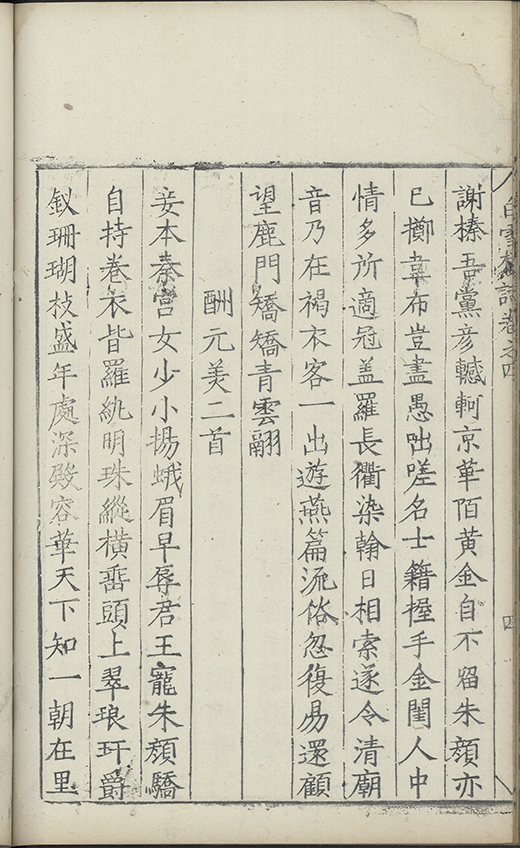 白雪樓詩卷之四
四
謝榛吾黨彦轗軻京華陌黄金自不留朱顔亦
已擲韋布豈盡愚咄嗟名士籍握手金閨人中
情多所適冠盖羅長衢染翰日相索遂令清廟
音乃在褐衣客一出遊燕篇流俗忽復易還顧
望鹿門矯矯青雲翮
酬元美二首
妾本秦宫女少小揚蛾眉早辱君王寵朱顔驕
自持卷衣皆羅紈明珠縱横垂頭上翠琅玕爵
釵珊瑚枝盛年處深殿容華天下知一朝在里